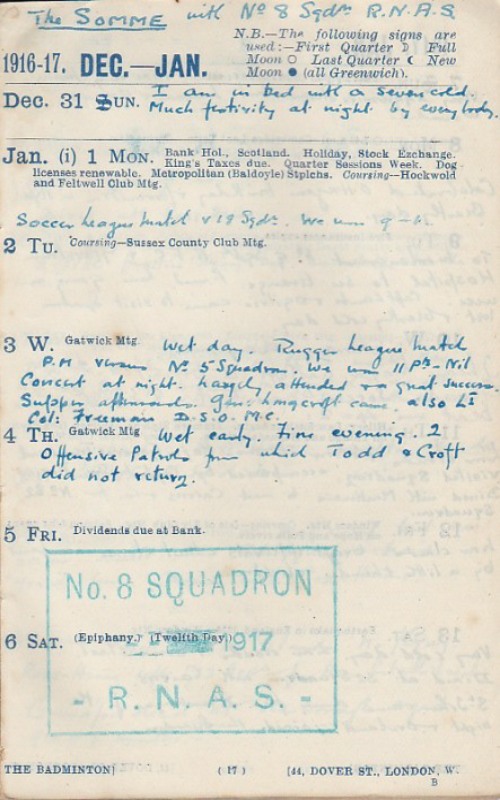 The SOMME with No 8 Sqdn R.N.A.S.
N.B.—The following signs are
used:—First Quarter ☽ Full
Moon ○ Last Quarter ☾ New
Moon ● (all Greenwich).
1916-17. DEC.—JAN.
Dec. 31 SUN. I am in bed with a severe cold.
Much festivity at night by everybody.
Jan. (i) 1 MON. Bank Hol., Scotland. Holiday, Stock Exchange.
King's Taxes due. Quarter Sessions Week. Dog
licenses renewable. Metropolitan (Baldoyle) Stplchs. Coursing—Hockwold
and Feltwell Club Mtg.
Soccer League match v 19 Sqdn. We won 9 -
2 TU. Coursing—Sussex County Club Mtg.
3 W. Gatwick Mtg. Wet day. Rugger League match
P.M versus No 5 Squadron. We won 11 Pts - Nil
Concert at night. Largely attended & a great success.
Supper afterwards. Gen: Longcroft came also Lt
Col: Freeman D.S.O. M.C.
4 TH. Gatwick Mtg Wet early. Fine evening. 2
Offensive Patrols from which Todd & Croft
did not return.
5 FRI. Dividends due at Bank.
No. 8 SQUADRON
6 SAT. (Epiphany.) (Twelfth Day.) 1917
- R. N. A. S. -
THE BADMINTON]
( 17 )
[44, DOVER ST., LONDON, W.
B